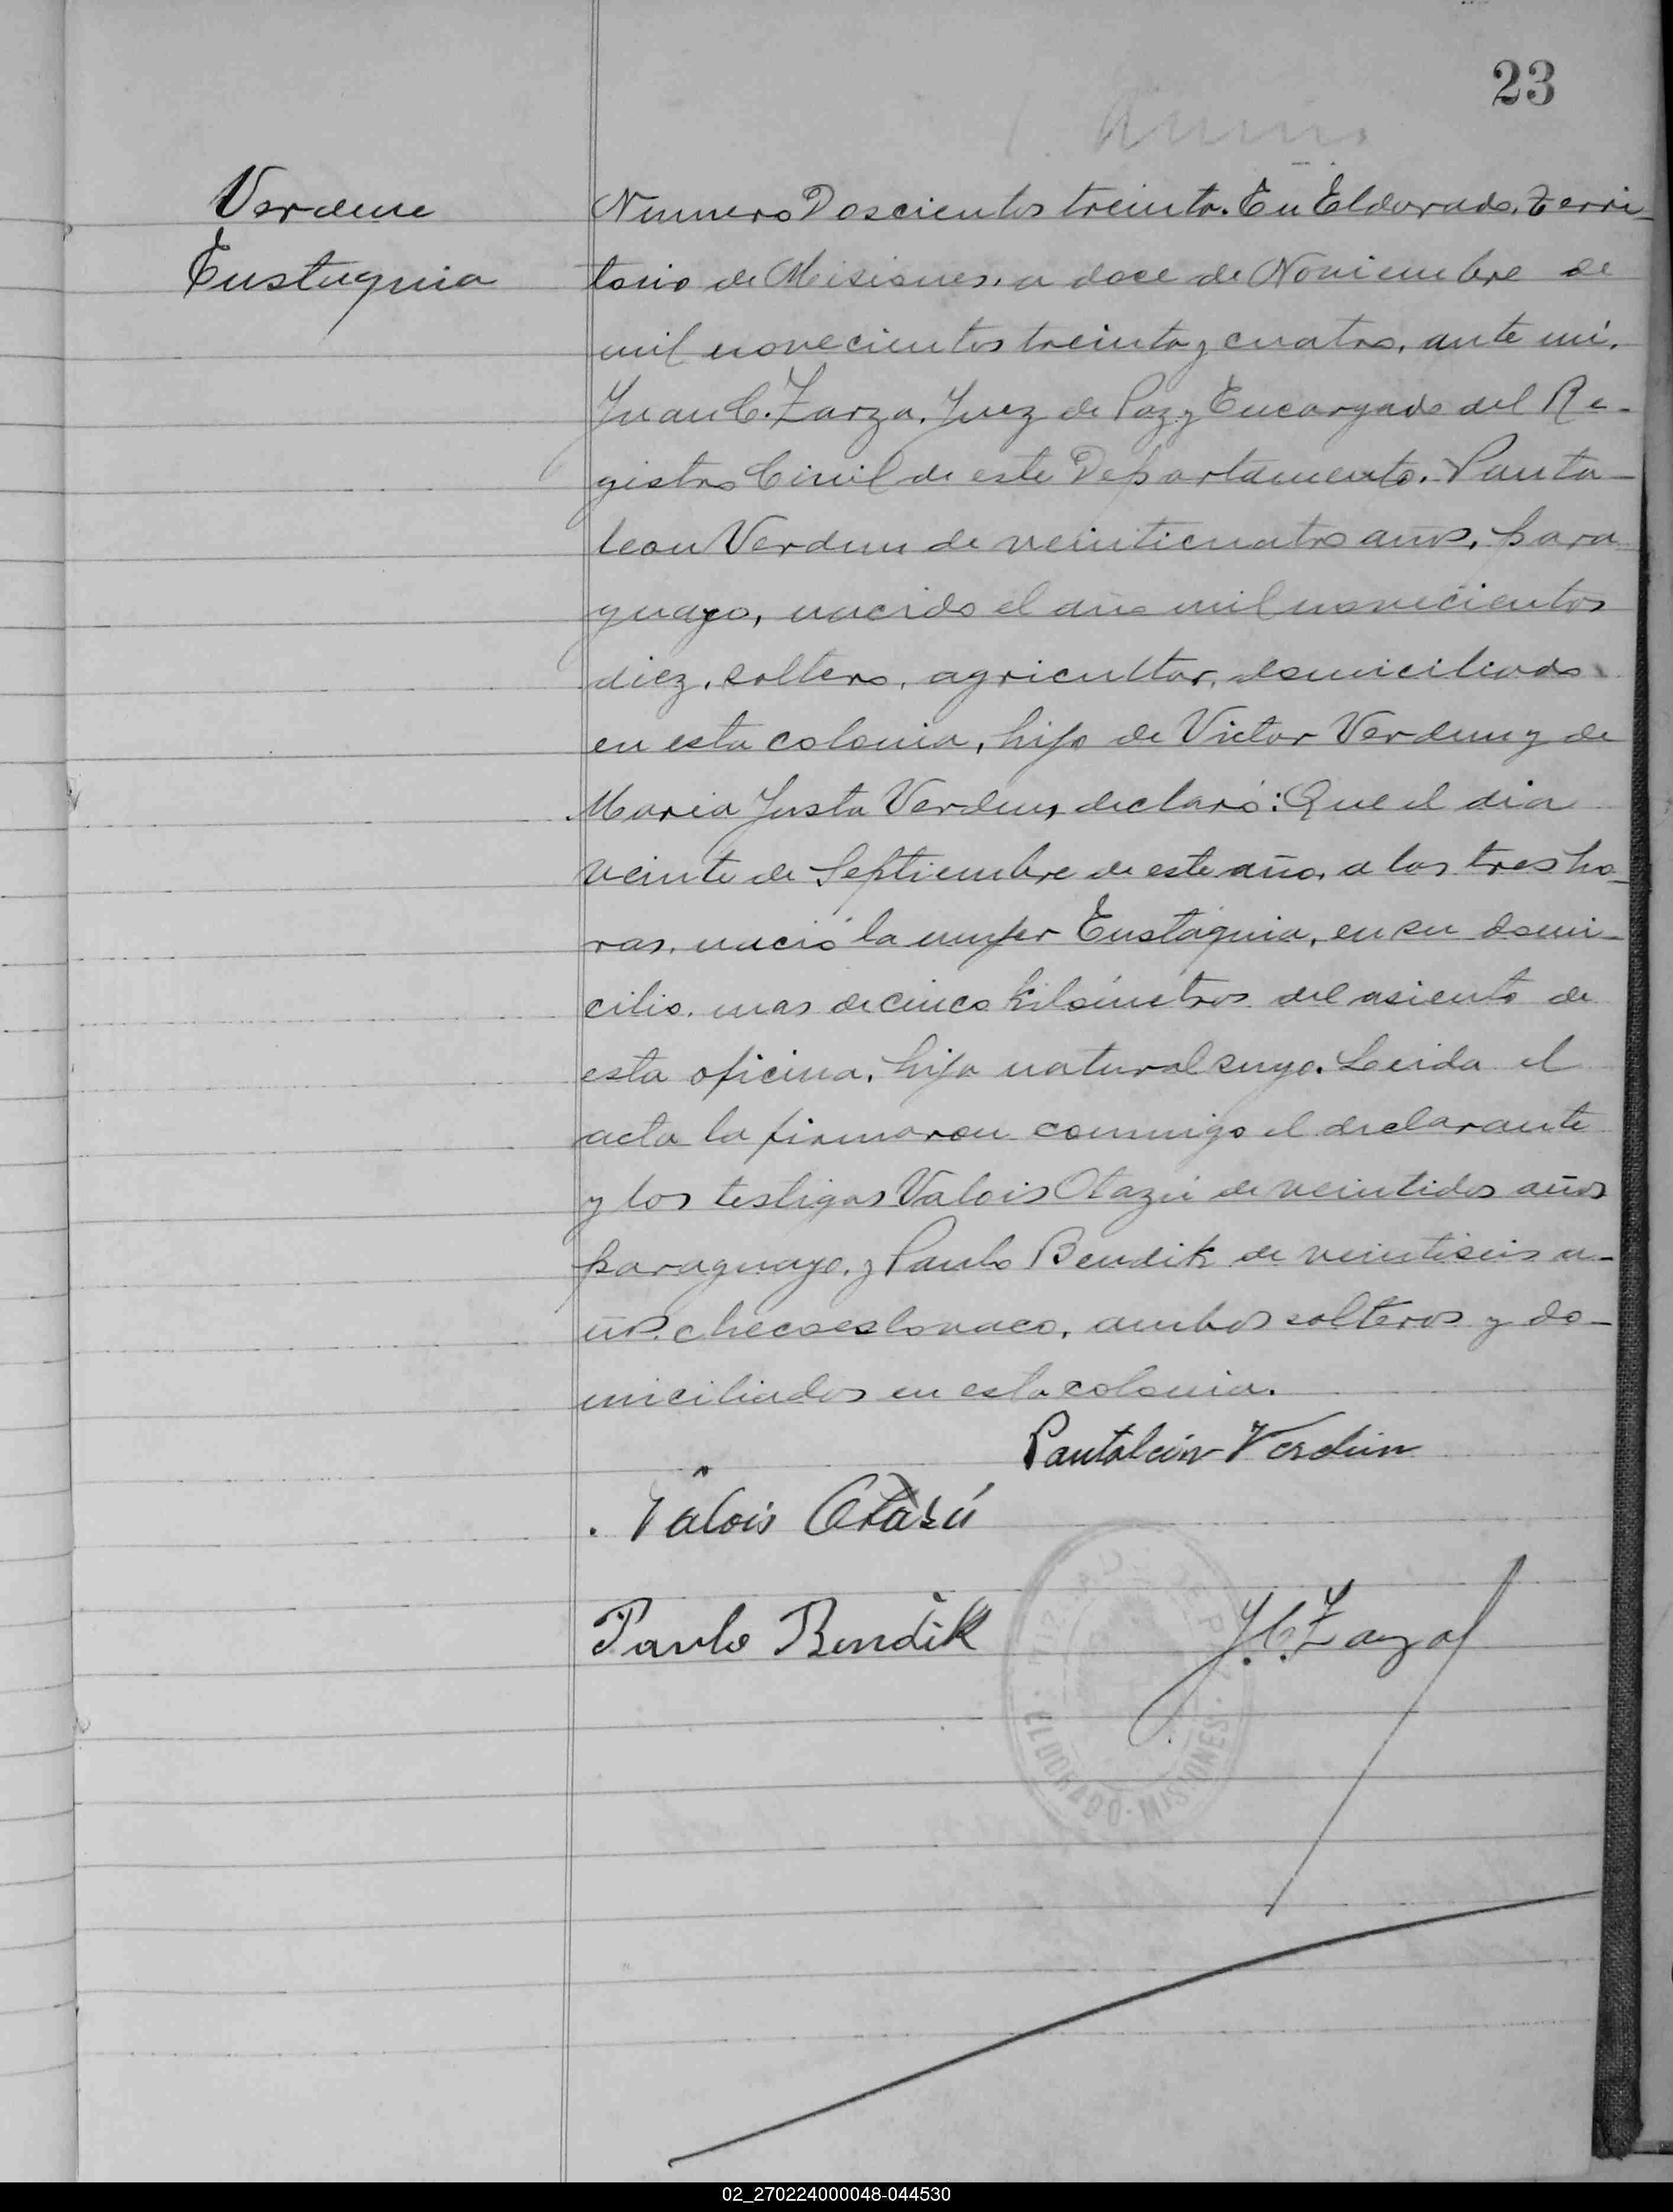 23
Verdun
Eustaquia
Numero Doscientos treinta. En Eldorado, Terri-
torio de Misiones, a doce de Noviembre de
mil novecientos treinta y cuatro, ante mi,
Juan C. Zarza, Juez de Paz y Encargado del Re-
gistro Civil de este Departamento. Panta-
leon Verdun de veinticuatro años, para
guayo, nacido el año mil novecientos
diez, soltero, agricultor, domiciliado
en esta colonia, hijo de Victor Verdun y de
Maria Justa Verdun, declaró: Que el dia
veinte de Septiembre de este año, a las tres ho-
ras, nació la mujer Eustaquia, en su domi-
cilio, mas de cinco kilómetros del asiento de
esta oficina, hija natural suya. Leida el
acta la firmaron conmigo el declarante
y los testigos Valois Otazú de veintidos años
paraguayo, y Paulo Bendik de veintiseis a-
ños, checoeslovaco, ambos solteros y do-
miciliados en esta colonia.
Pantaleón Verdún
Valois Otazú
Paulo Bendik
J.C. Zarza
ELDORADO · MISIONES ·
02_270224000048-044530